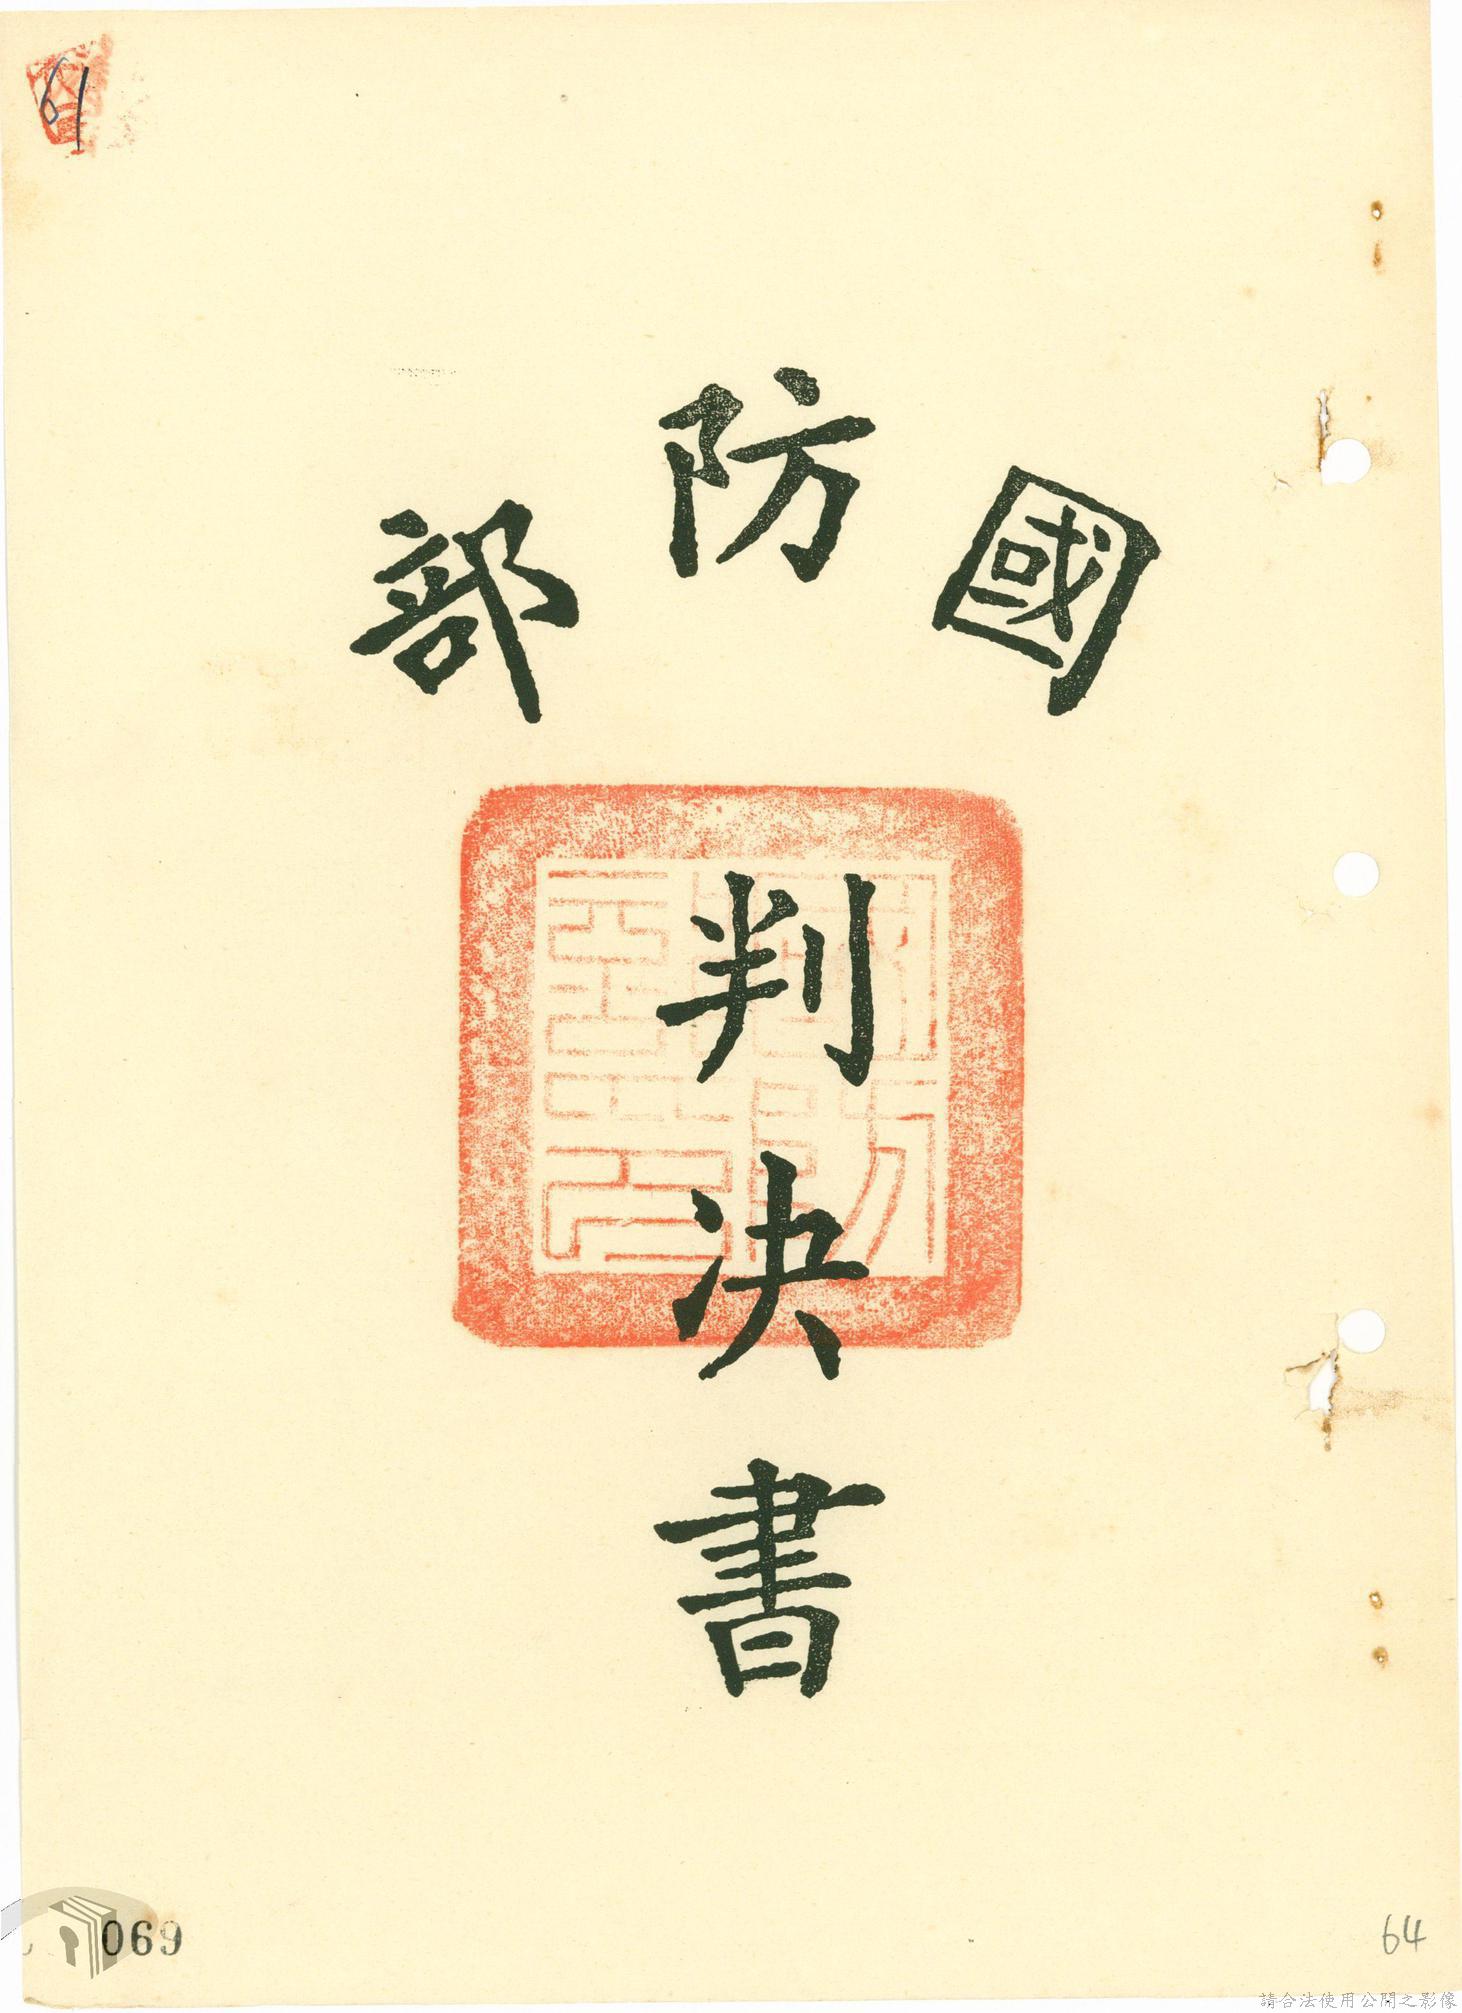 61
國防部
判決書
069
64
請合法使用公開之影像